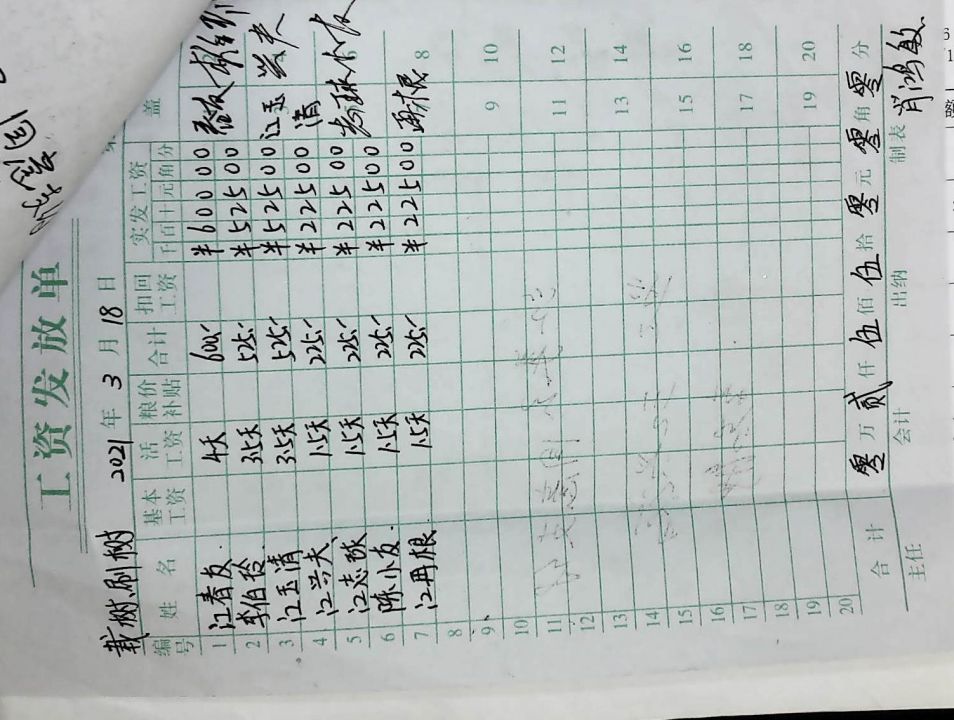 工资发放单
栽树.刷树 2021年3月18日
编号 姓名 基本工资 活工资 粮价补贴 合计 扣回工资 实发工资 千百十元角分 盖
1 江春友 4天 600.- ¥60000
2 李伯玲 3.5天 525.- ¥52500
3 江玉清 3.5天 525.- ¥52500
4 江兴夫 1.5天 225.- ¥22500
5 江志球 1.5天 225.- ¥22500
6 陈小友 1.5天 225.- ¥22500
7 江再根 1.5天 225.- ¥22500 8
8
9 9 10
10
11 11 12
12
13 13 14
14
15 15 16
16
17 17 18
18
19 19 20
20
合计 零万贰仟伍佰伍拾零元零角零分
主任 会计 出纳 制表 肖鸿敏